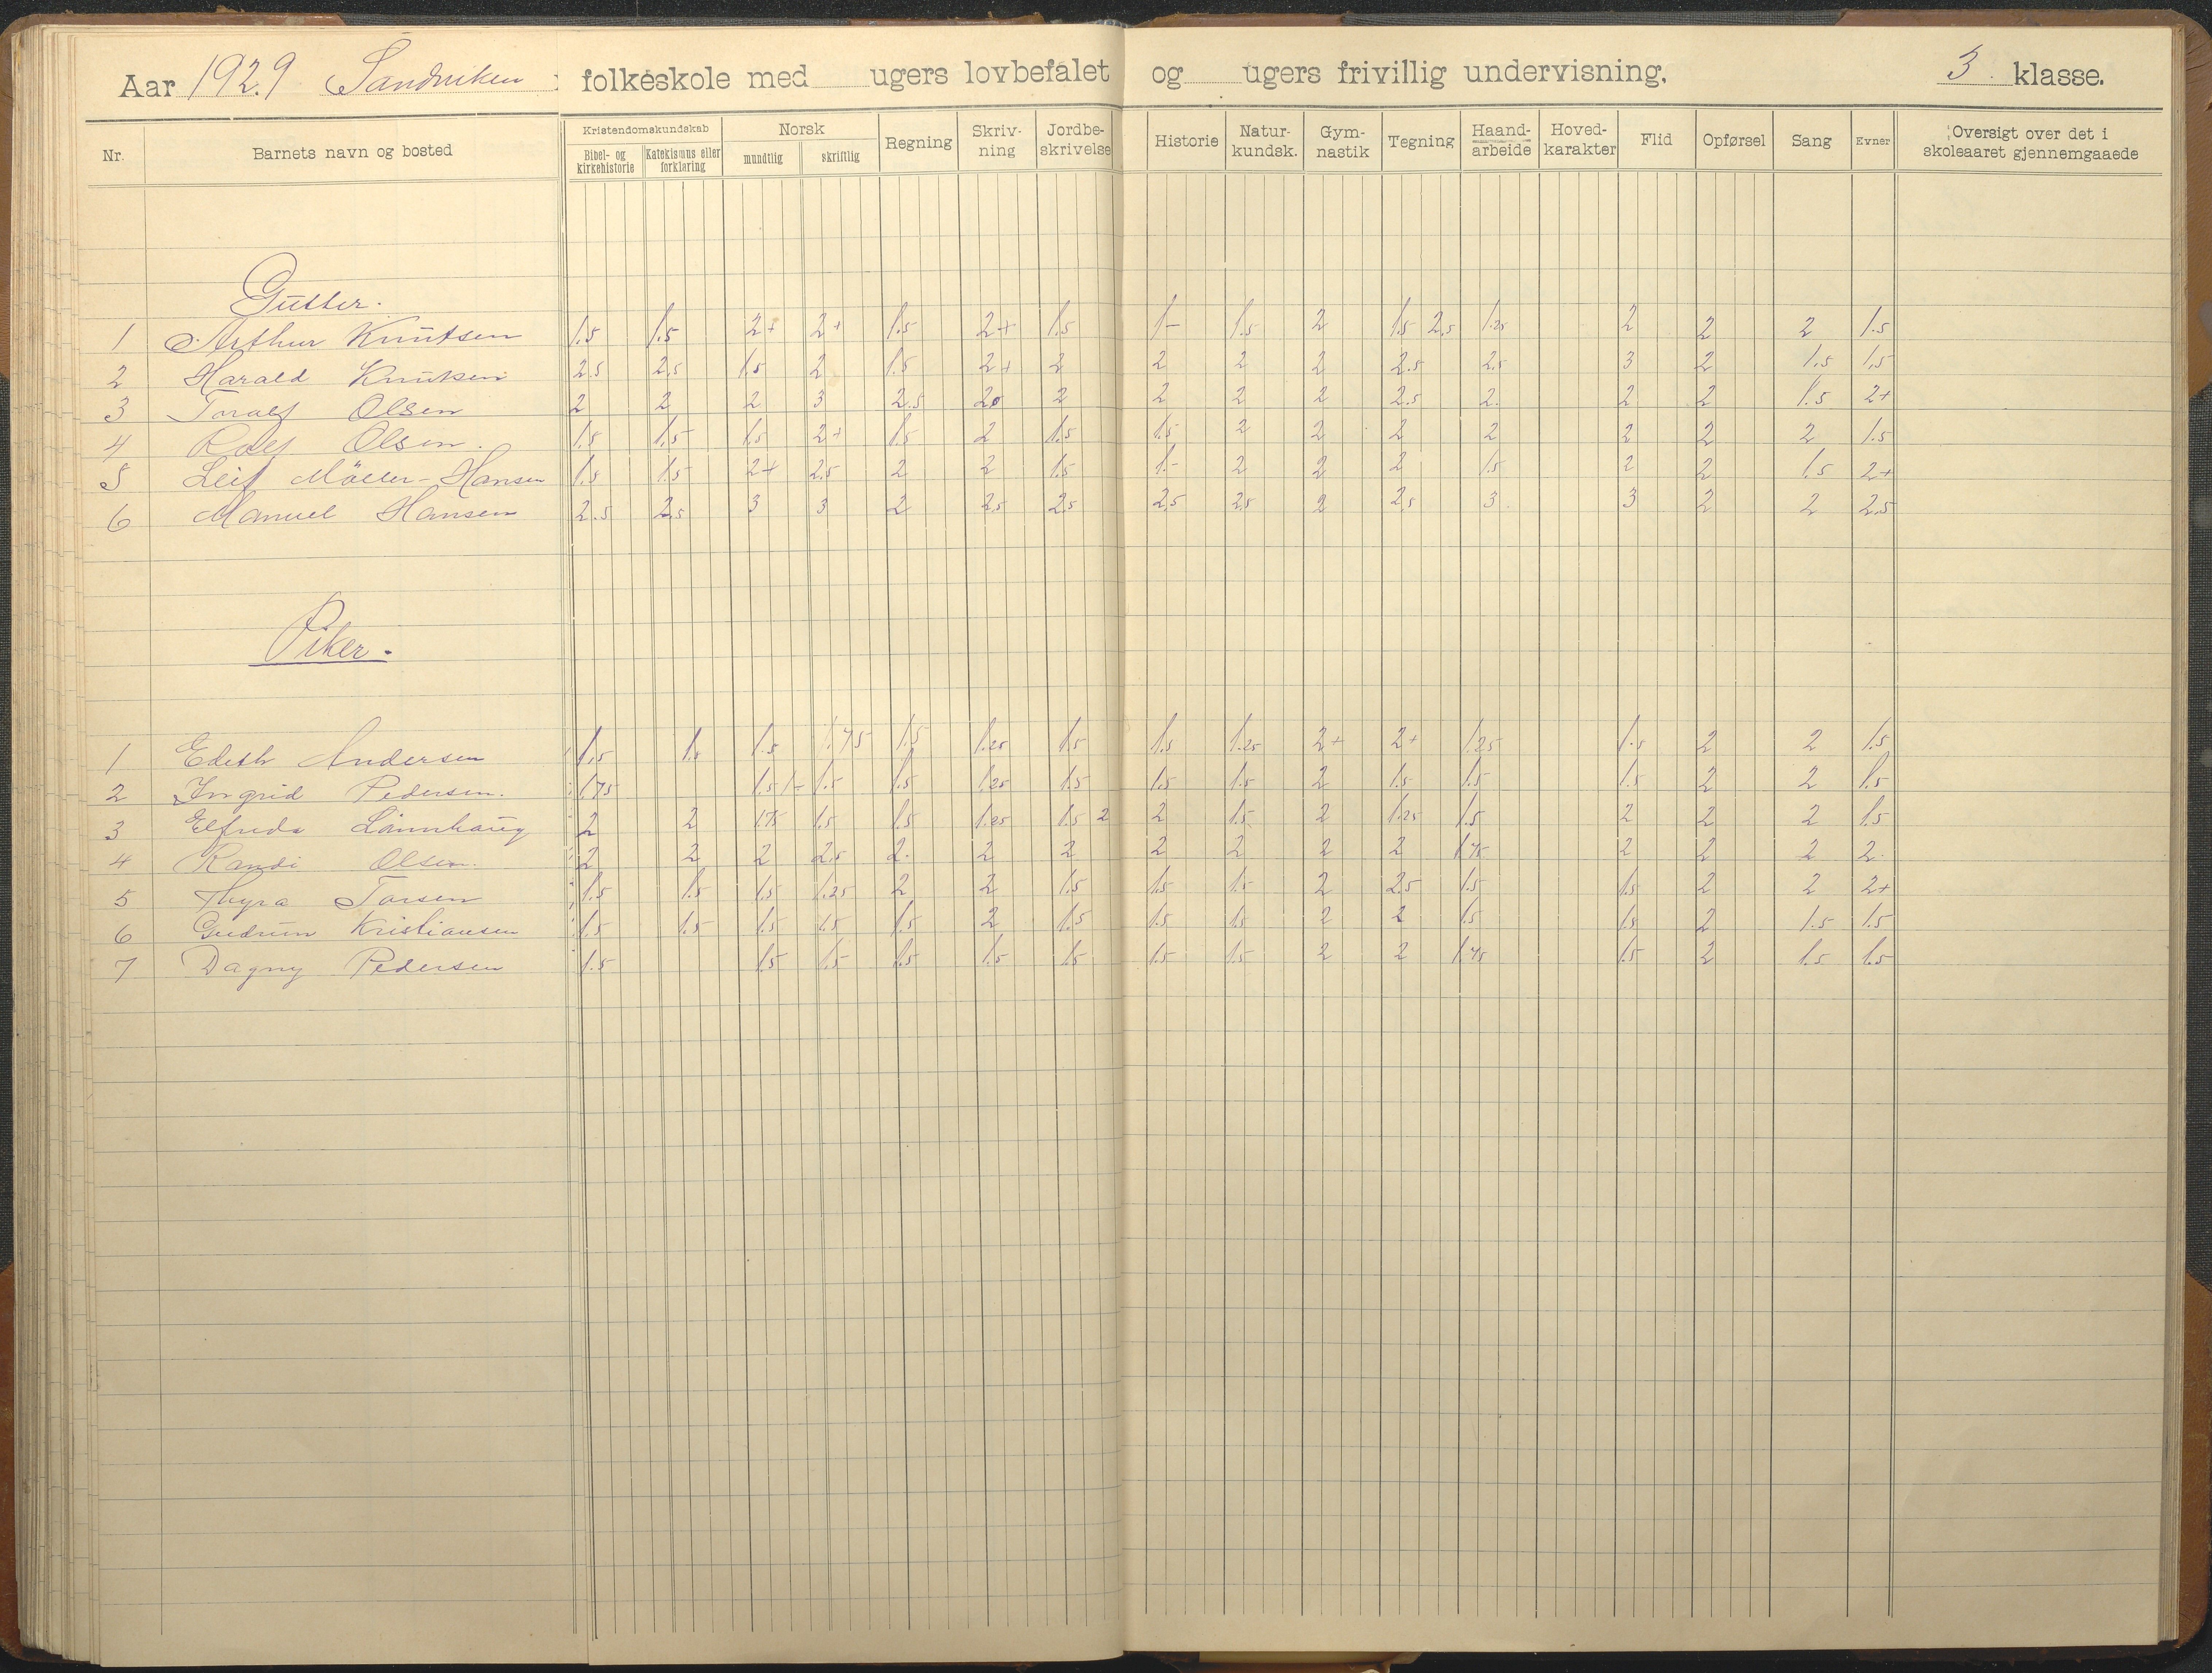 Aar 1929 Sandviken folkeskole med ugers lovbefalet og ugers frivillig undervisning. 3. klasse.
Nr. Barnets navn og bosted Kristendomskundskab Bibel- og kirkehistorie Katekismus eller forklaring Norsk mundtlig skriftlig Regning Skriv-ning Jordbe-skrivelse Historie Natur-kundsk. Gym-nastik Tegning Haand-arbeide Hoved-karakter Flid Opførsel Sang Evner Oversigt over det i skoleaaret gjennemgaaede
Gutter.
1 Arthur Knutsen 1.5 1.5 2+ 2+ 1.5 2+ 1.5 1- 1.5 2 1.5 2.5 1.25 2 2 2 1.5
2 Harald Knutsen 2.5 2.5 1.5 2 1.5 2+ 2 2 2 2 2.5 2.5 3 2 1.5 1.5
3 Toralf Olsen 2 2 2 3 2.5 2 2 2 2 2.5 2. 2 2 1.5 2+
4 Rolf Olsen. 1.5 1.5 1.5 2+ 1.5 2 1.5 1.5 2 2 2 2 2 2 2 1.5
5 Leif Möller-Hansen 1.5 1.5 2+ 2.5 2 2 1.5 1.- 2 2 2 1.5 2 2 1.5 2+
6 Manuel Hansen 2.5 2.5 3 3 2 2.5 2.5 2.5 2.5 2 2.5 3. 3 2 2 2.5
Piker.
1 Edith Andersen 1.5 1.5 1.5 1.75 1.5 1.25 1.5 1.5 1.25 2+ 2+ 1.25 1.5 2 2 1.5
2 Ingrid Pedersen. 1.75 1.5 1- 1.5 1.5 1.25 1.5 1.5 1.5 2 1.5 1.5 1.5 2 2 1.5
3 Elfrida Lönnhaug 2 2 1.75 1.5 1.5 1.25 1.5 2 2 1.5 2 1.25 1.5 2 2 2 1.5
4 Randi Olsen. 2 2 2 2.5 2. 2 2 2 2 2 2 1.75 2 2 2 2.
5 Thyra Torsen 1.5 1.5 1.5 1.25 2 2 1.5 1.5 1.5 2 2.5 1.5 1.5 2 2 2+
6 Gudrun Kristiansen 1.5 1.5 1.5 1.5 1.5 2 1.5 1.5 1.5 2 2 1.5 1.5 2 1.5 1.5
7 Dagny Pedersen 1.5 1.5 1.5 1.5 1.5 1.5 1.5 1.5 2 2 1.75 1.5 2 1.5 1.5